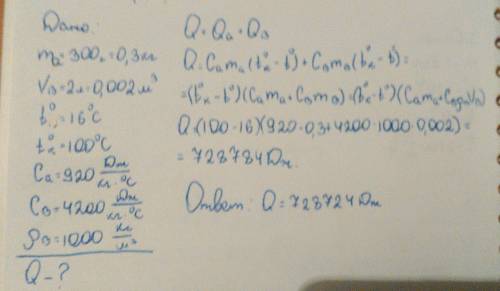 Дано:
mа=300г=0,3кг
Vв=2л=0,002м³
t°=16°C
tк°=100°C
Cа=920 Дж/кг·°C
Cв=4200 Дж/кг·°C
ρв=1000 кг/м³
Q-?
Q=Qа+Qв
Q=Cаmа(tк°-t°)+Cвmв(tк°-t°)=
=(tк°-t°)(Cаmа+Cвmв)=(tк°-t°)(Cаmа+CвρвVв)
Q=(100-16)(920·0,3+4200·1000·0,002)=
=728784Дж.
Ответ: Q=728724Дж